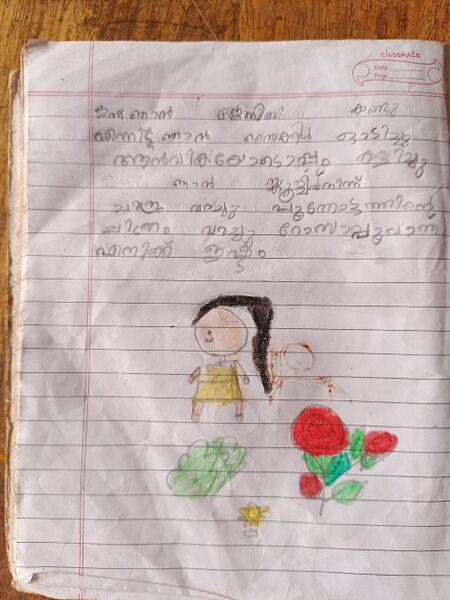 classmate
Date
Page
ഇന്ന് ഞാൻ കണ്ടു
എന്നിട്ട് ഞാൻ സൈക്കിൾ ഓടിച്ചു
ആൻവികയോടൊപ്പം കളിച്ചു
ഞാൻ സ്കൂളിൽനിന്ന്
ചിത്രം വരച്ചു. പൂന്തോട്ടത്തിന്റെ
ചിത്രം വരച്ചു റോസാപ്പൂവാണ്
എനിക്ക് ഇഷ്ടം